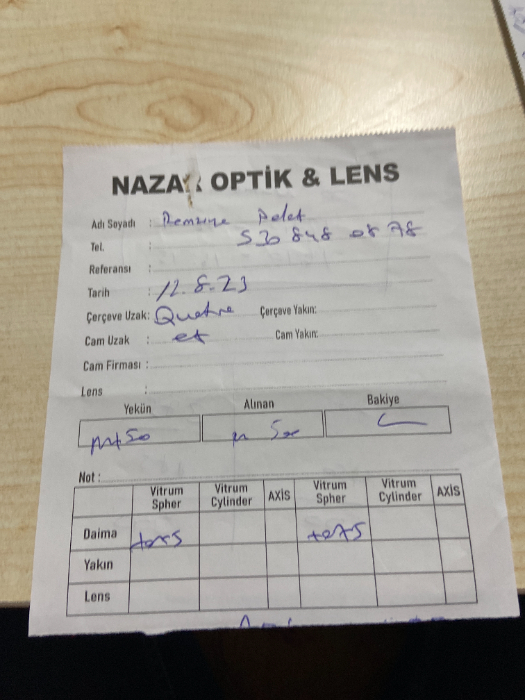 NAZAR OPTİK & LENS
Adı Soyadı : Remziye Polat
Tel. : 530 848 08 78
Referansı :
Tarih : 12.8.23
Çerçeve Uzak: Çerçeve Yakın:
Cam Uzak : Cam Yakın:
Cam Firması :
Lens :
Yekün Alınan Bakiye
Not :
Vitrum Spher Vitrum Cylinder AXİS Vitrum Spher Vitrum Cylinder AXİS
Daima
Yakın
Lens